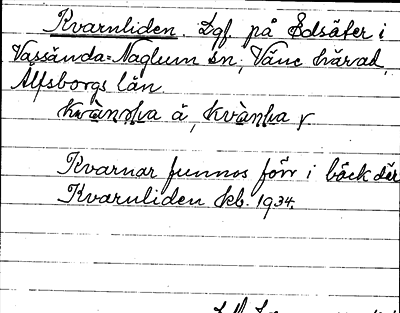 Kvarnliden. Lgf. på Edsäter i
Vassända-Naglum sn, Väne härad,
Älfsborgs län
å,
Kvarnar funnos förr i bäck där
Kvarnliden kb. 1934.